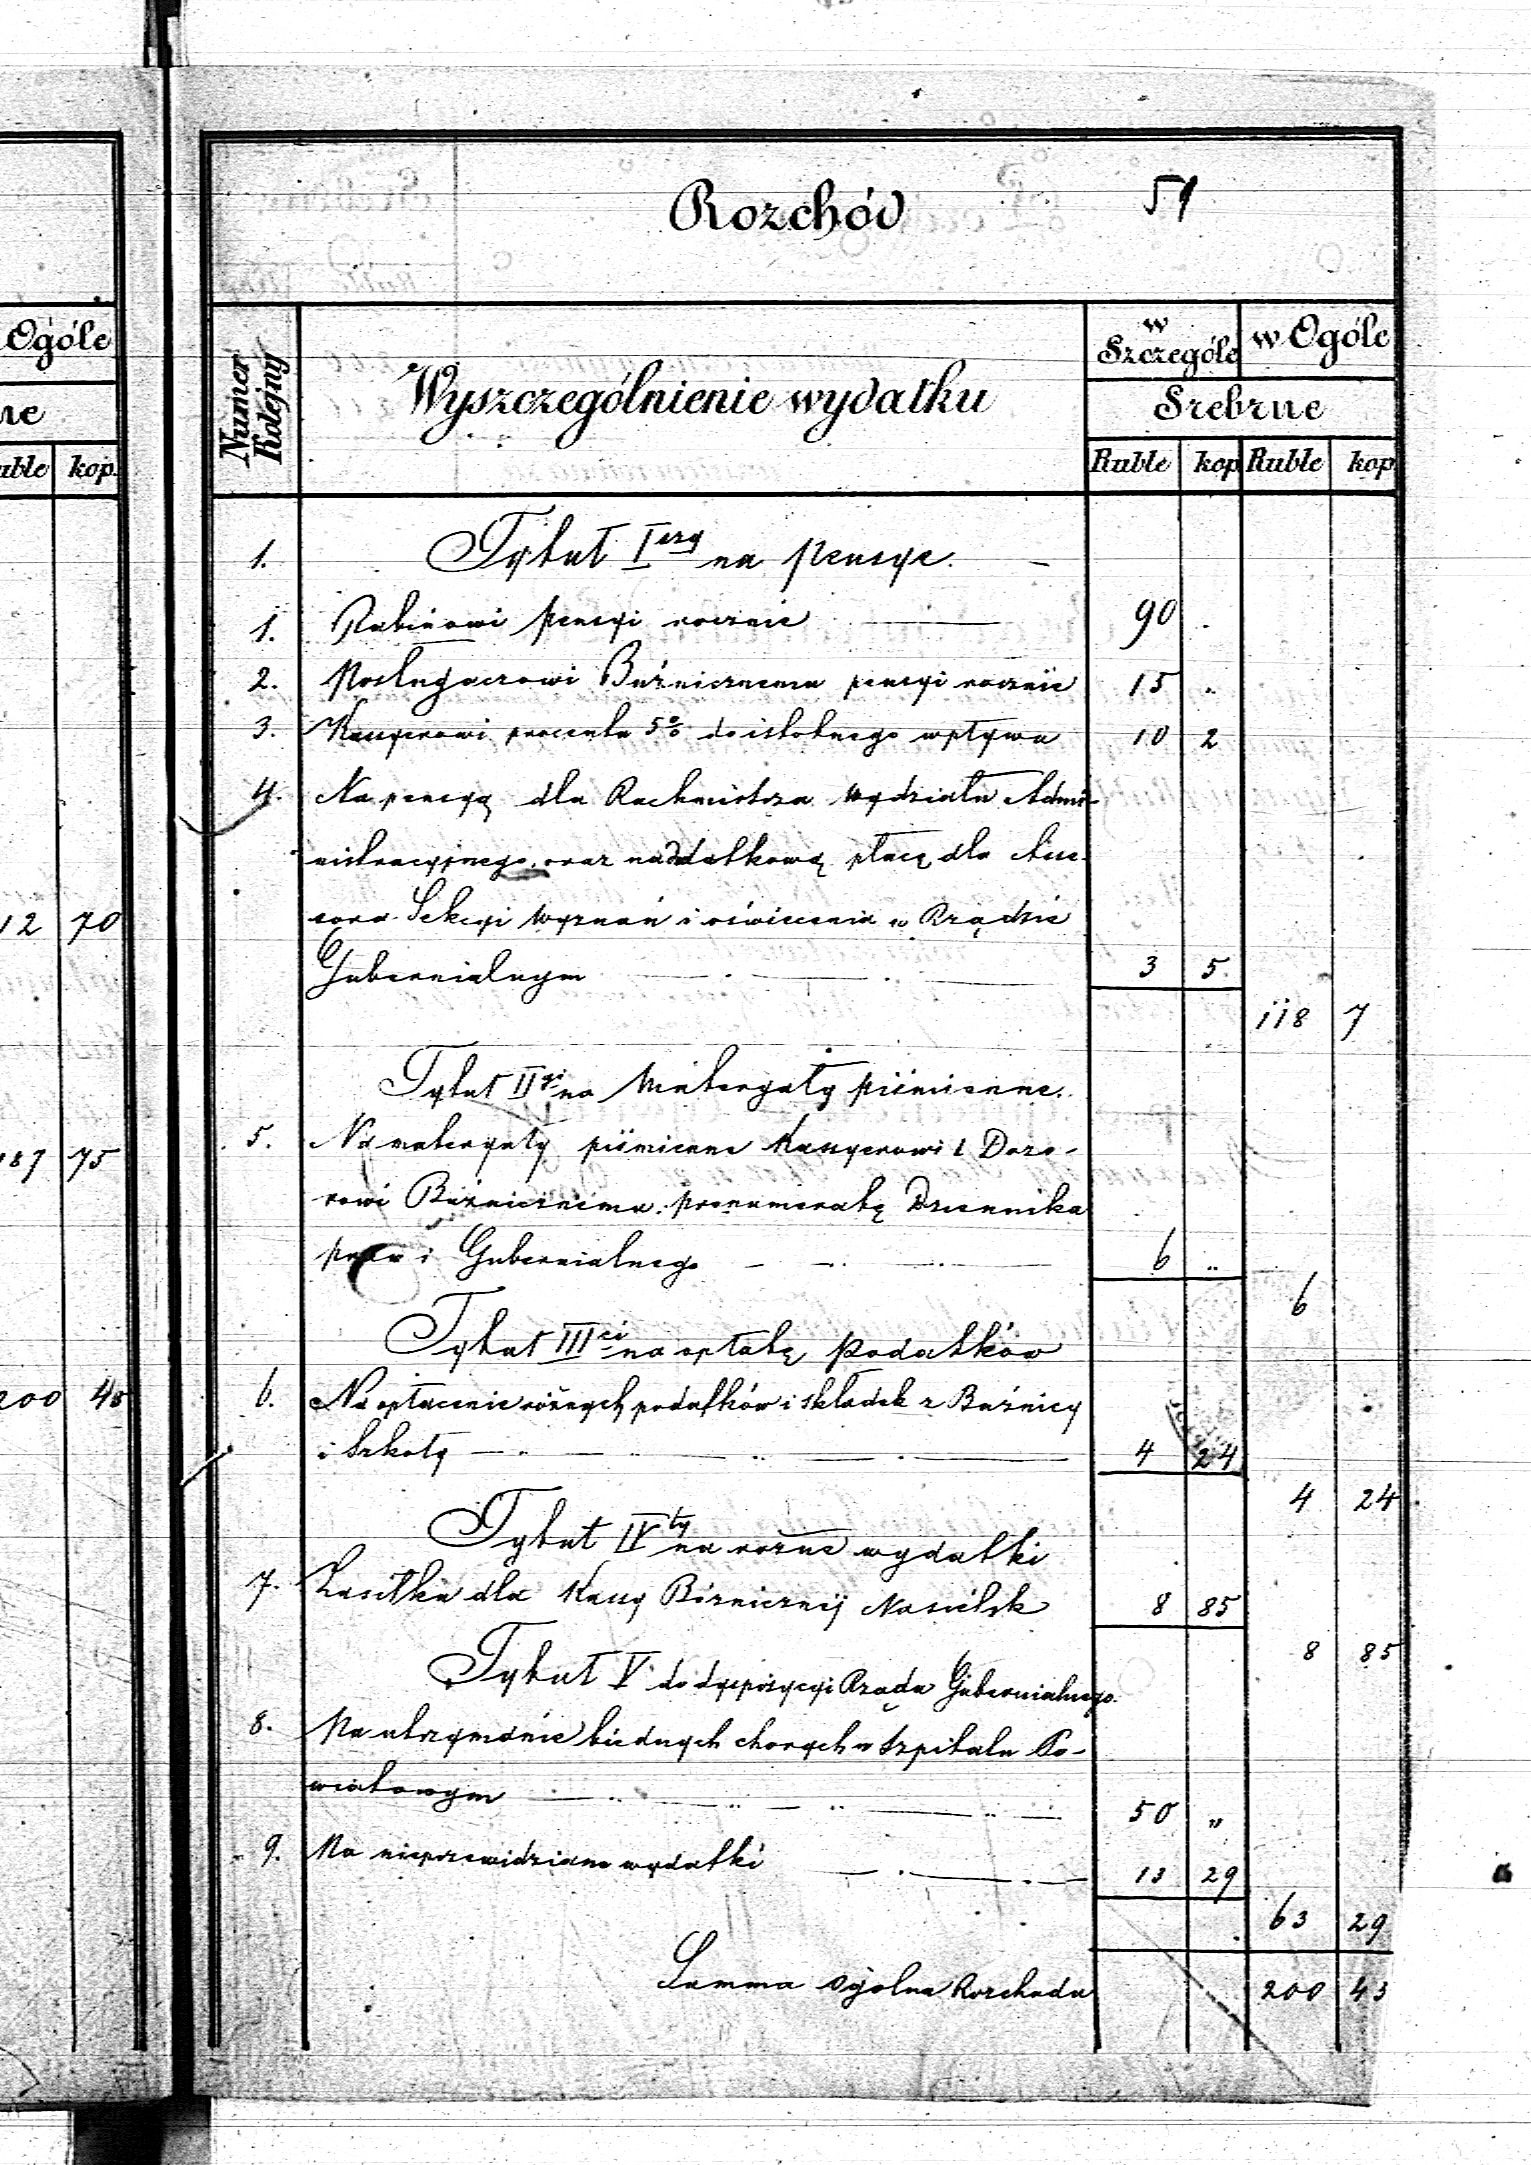 Rozchód 59
Ogóle
ne
uble kop.
12 70
187 75
200 45
Numer Kolejny
Wyszczególnienie wydatku
w Szczególe
w Ogóle
Srebrne
Ruble kop Ruble kop
1. Tytuł Iszy na pensye. —
1. Rabinowi pensyi rocznie — 90 .
2. Posługaczowi Buźnicznemu pensyi rocznie 15 "
3. Kassyerowi procentu 5% do istotnego wpływu 10 2
4. Na pensyą dla Rachmistrza Wydziału Admi-
nistracyjnego, oraz naddatkową płacę dla Asse-
sora Sekcyi Wyznań i oświecenia w Rządzie
Gubernialnym — . — . 3 5.
118 7
Tytuł IIgi na Materyały piśmienne.
5. Na materyały piśmienne Kassyerowi i Dozo-
rowi Buźnicznemu, prenumeratę Dziennika
praw i Gubernialnego — — . — 6 "
6
Tytuł IIIci na opłatę podatków
6. Na opłacenie różnych podatków i składek z Buźnicy
i Szkoły — " — " — . — 4 24
4 24
Tytuł IVty na rozne wydatki
7. Zasiłku dla Kassy Bóżnicznej Nasielsk 8 85
8 85
Tytuł V do dyspozycyi Rządu Gubernialnego.
8. Na utrzymanie biednych chorych w szpitalu Po-
wiatowym — " — " — " — 50 "
9. Na nieprzewidziane wydatki — . — . — 13 29
63 29
Summa ogolna Rozchodu 200 45